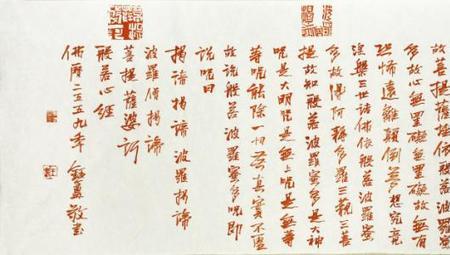 故菩提薩埵依般若波羅蜜
多故心無罣礙無罣礙故無有
恐怖遠離顛倒夢想究竟
涅槃三世諸佛依般若波羅蜜
多故得阿耨多羅三藐三菩
提故知般若波羅蜜多是大神
呪是大明呪是無上呪是無等
等呪能除一切苦真實不虛
故說般若波羅蜜多呪即
說呪曰
揭諦揭諦 波羅揭諦
波羅僧揭諦
菩提薩婆訶
般若心經
佛曆二五五九年 敬書